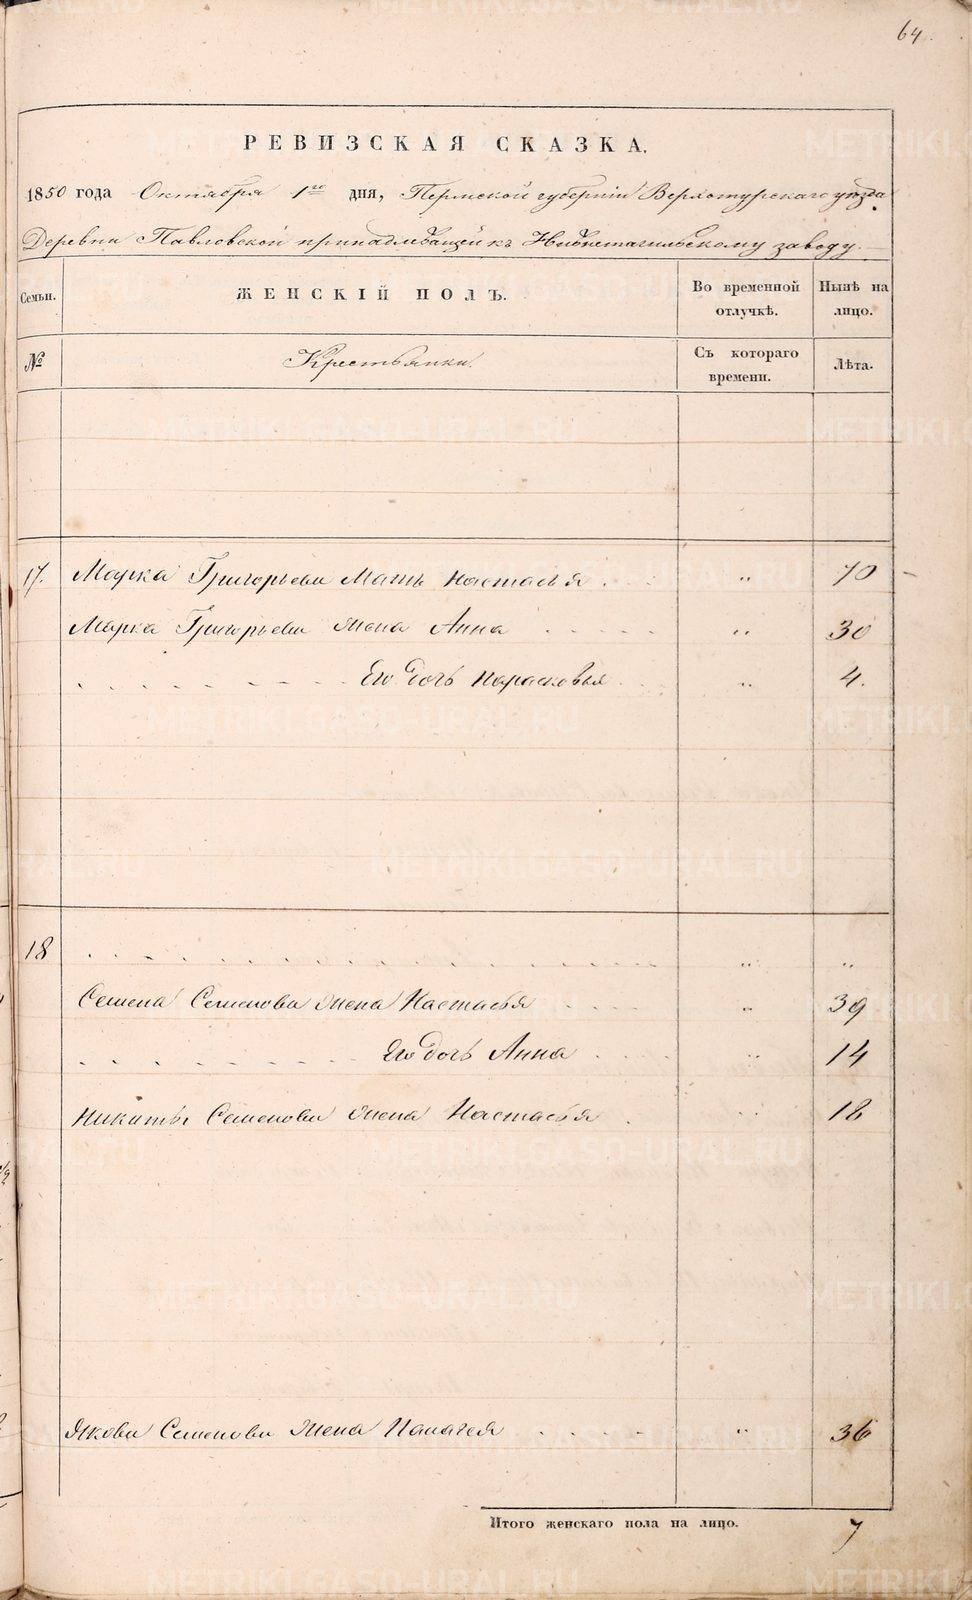 64.
РЕВИЗСКАЯ СКАЗКА.
1850 года Октября 1го дня, Пермской губерніи Верхотурскаго уѣзда
Деревни Павловской принадлежащей къ Нижнетагильскому заводу.
Семьи. ЖЕНСКІЙ ПОЛЪ. Во временной отлучкѣ. Нынѣ на лицо.
№ Крестьянки. Съ котораго времени. Лѣта.
17. Марка Григорьева Мать Настасья . . . „ 70 –
Марка Григорьева жена Анна . . . . . „ 30
. . . . . . . . Его дочь Парасковья . . . „ 4.
18 . . . . . . . . . . . . . . . . „ „
Семена Семенова жена Настасья . . . . „ 39
. . . . . . . . Его дочь Анна . . . . „ 14
Никиты Семенова жена Настасья . „ 18
Якова Семенова жена Палагея . . . . . „ 36
Итого женскаго пола на лицо. 7
METRIKI.GASO-URAL.RU